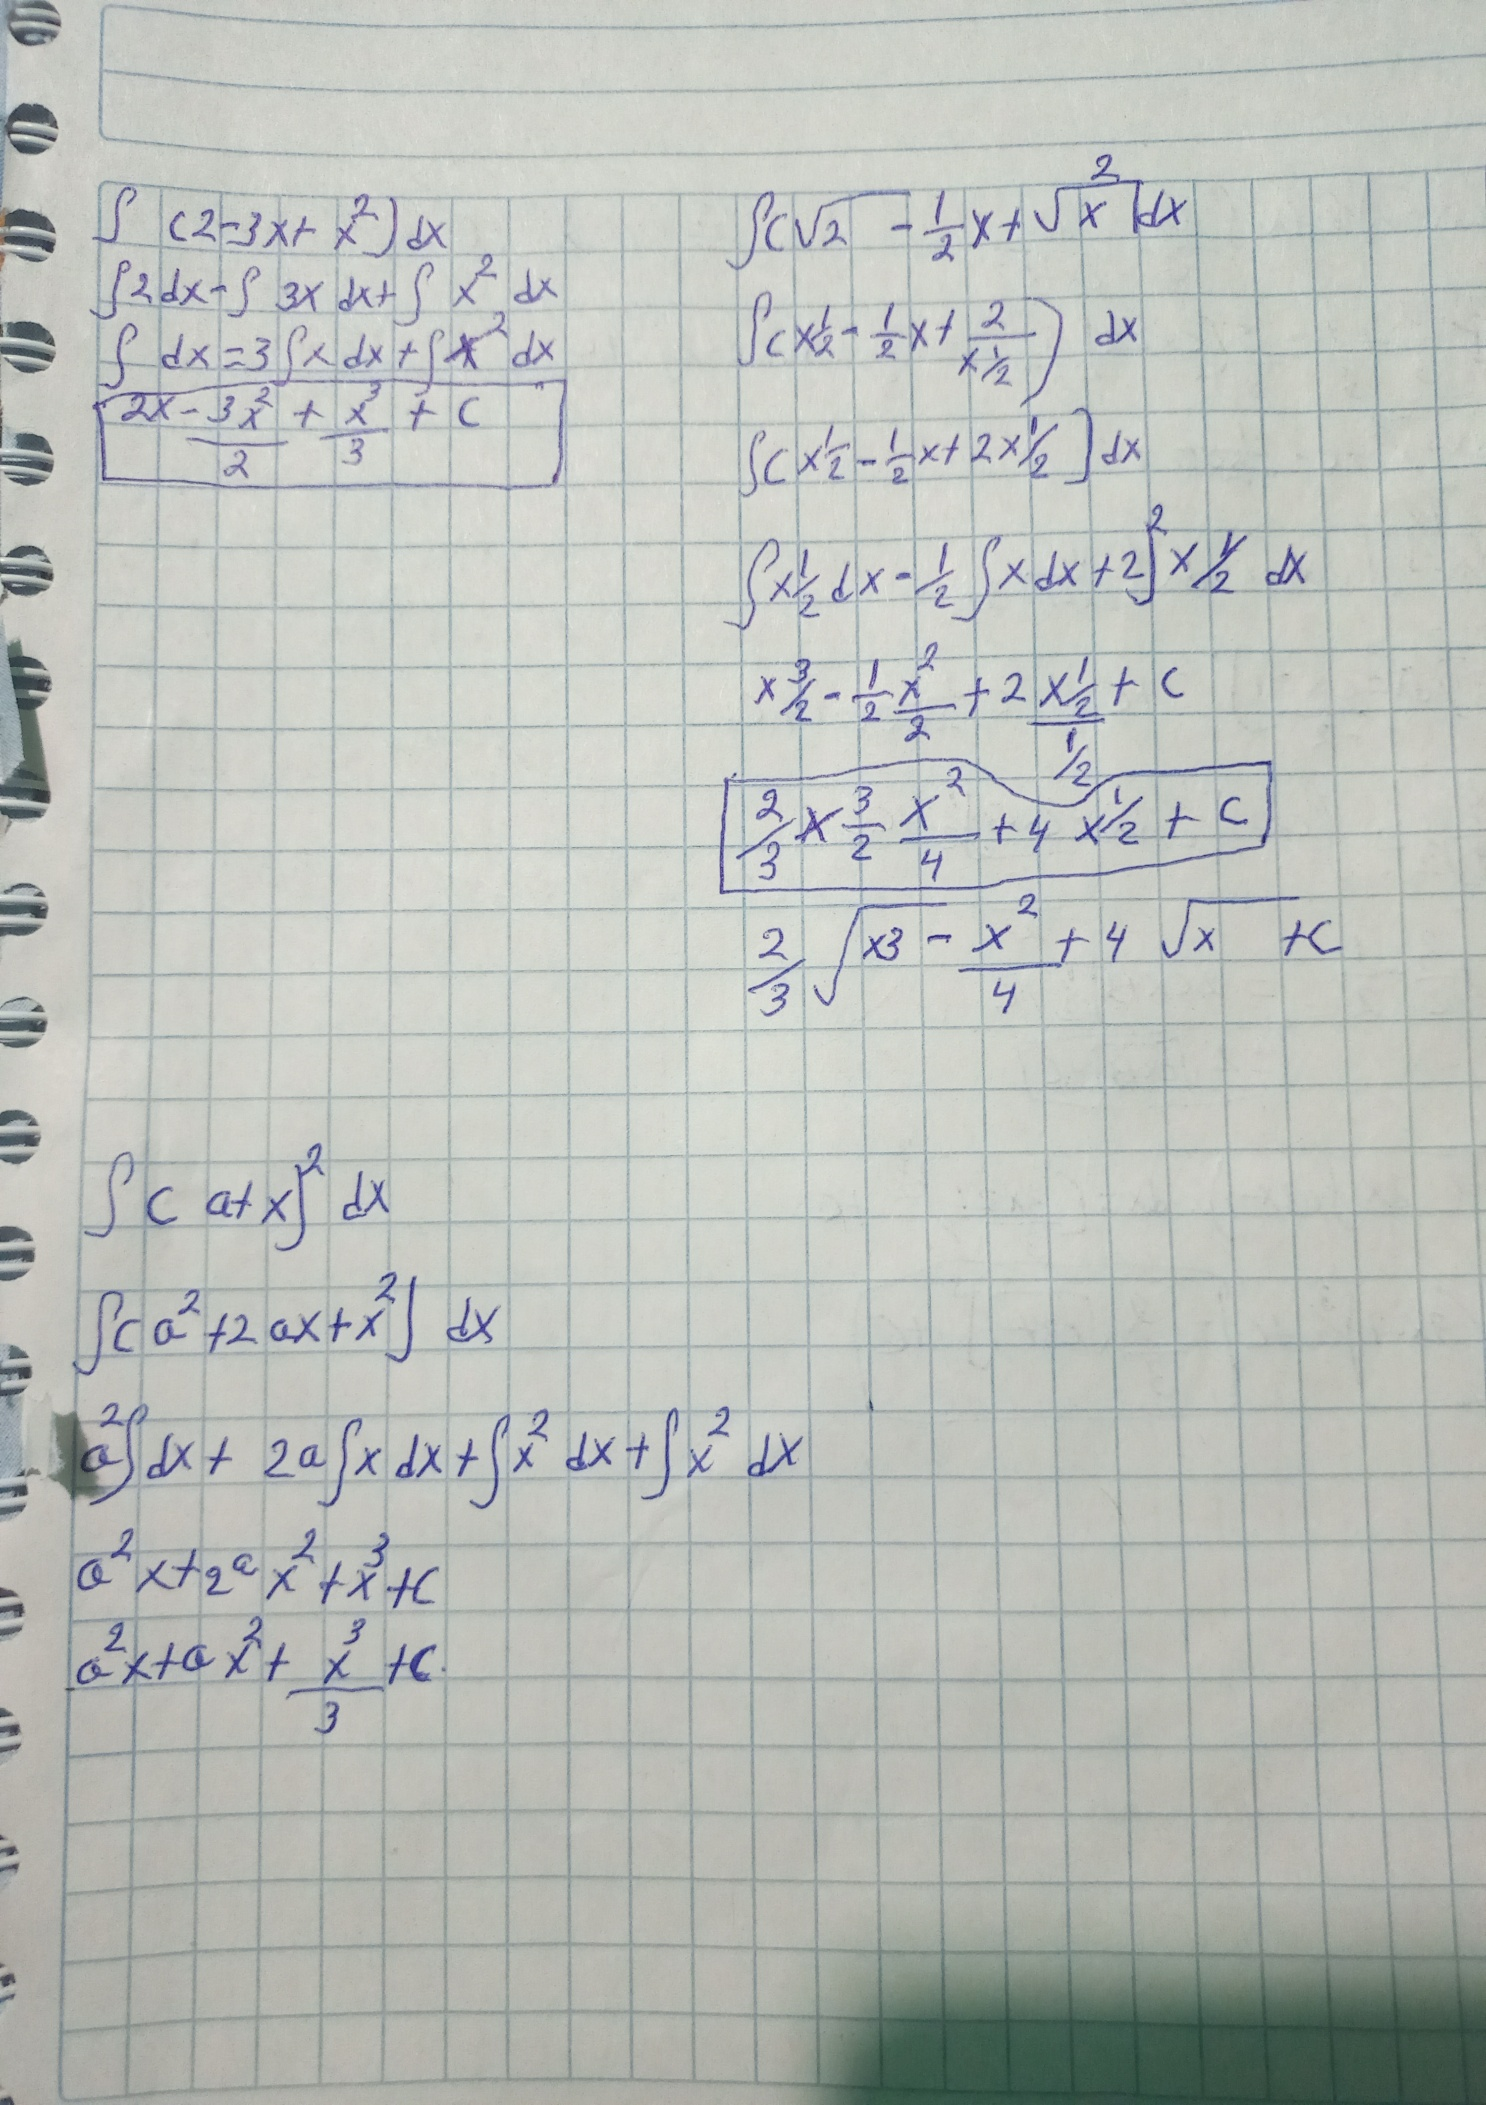 ∫ (2-3x+ x²) dx
∫2 dx - ∫ 3x dx + ∫ x² dx
∫ dx = 3∫x dx + ∫x² dx
2x - 3x²/2 + x³/3 + c
∫(√2 - 1/2 x + 2/√x) dx
∫(x 1/2 - 1/2 x + 2/x 1/2) dx
∫(x 1/2 - 1/2 x + 2x 1/2] dx
∫x 1/2 dx - 1/2 ∫x dx + 2∫² x 1/2 dx
x 3/2 - 1/2 x²/2 + 2 x 1/2 / 1/2 + c
2/3 x 3/2 x²/4 + 4 x 1/2 + c
2/3 √x3 - x²/4 + 4 √x + c
∫( a+x)² dx
∫(a² + 2ax + x²) dx
a²∫dx + 2a∫x dx + ∫x² dx + ∫x² dx
a²x + 2ᵃ x² + x³ + c
a²x + ax² + x³/3 + c